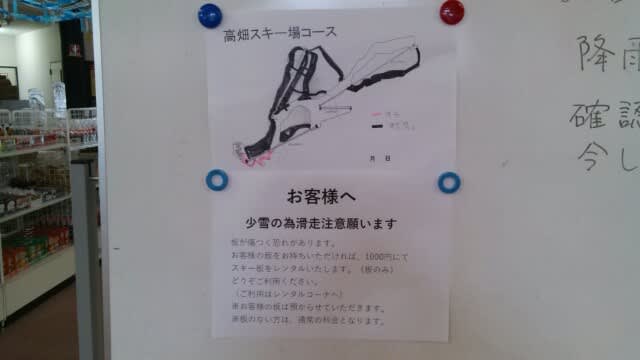 高畑スキー場コース
月 日
お客様へ
少雪の為滑走注意願います
板が傷つく恐れがあります。
お客様の板をお持ちいただければ、1000円にて
スキー板をレンタルいたします。（板のみ）
どうぞご利用ください。
（ご利用はレンタルコーナへ）
※お客様の板は預からせていただきます。
※板のない方は、通常の料金となります。
降雨
確認
今し